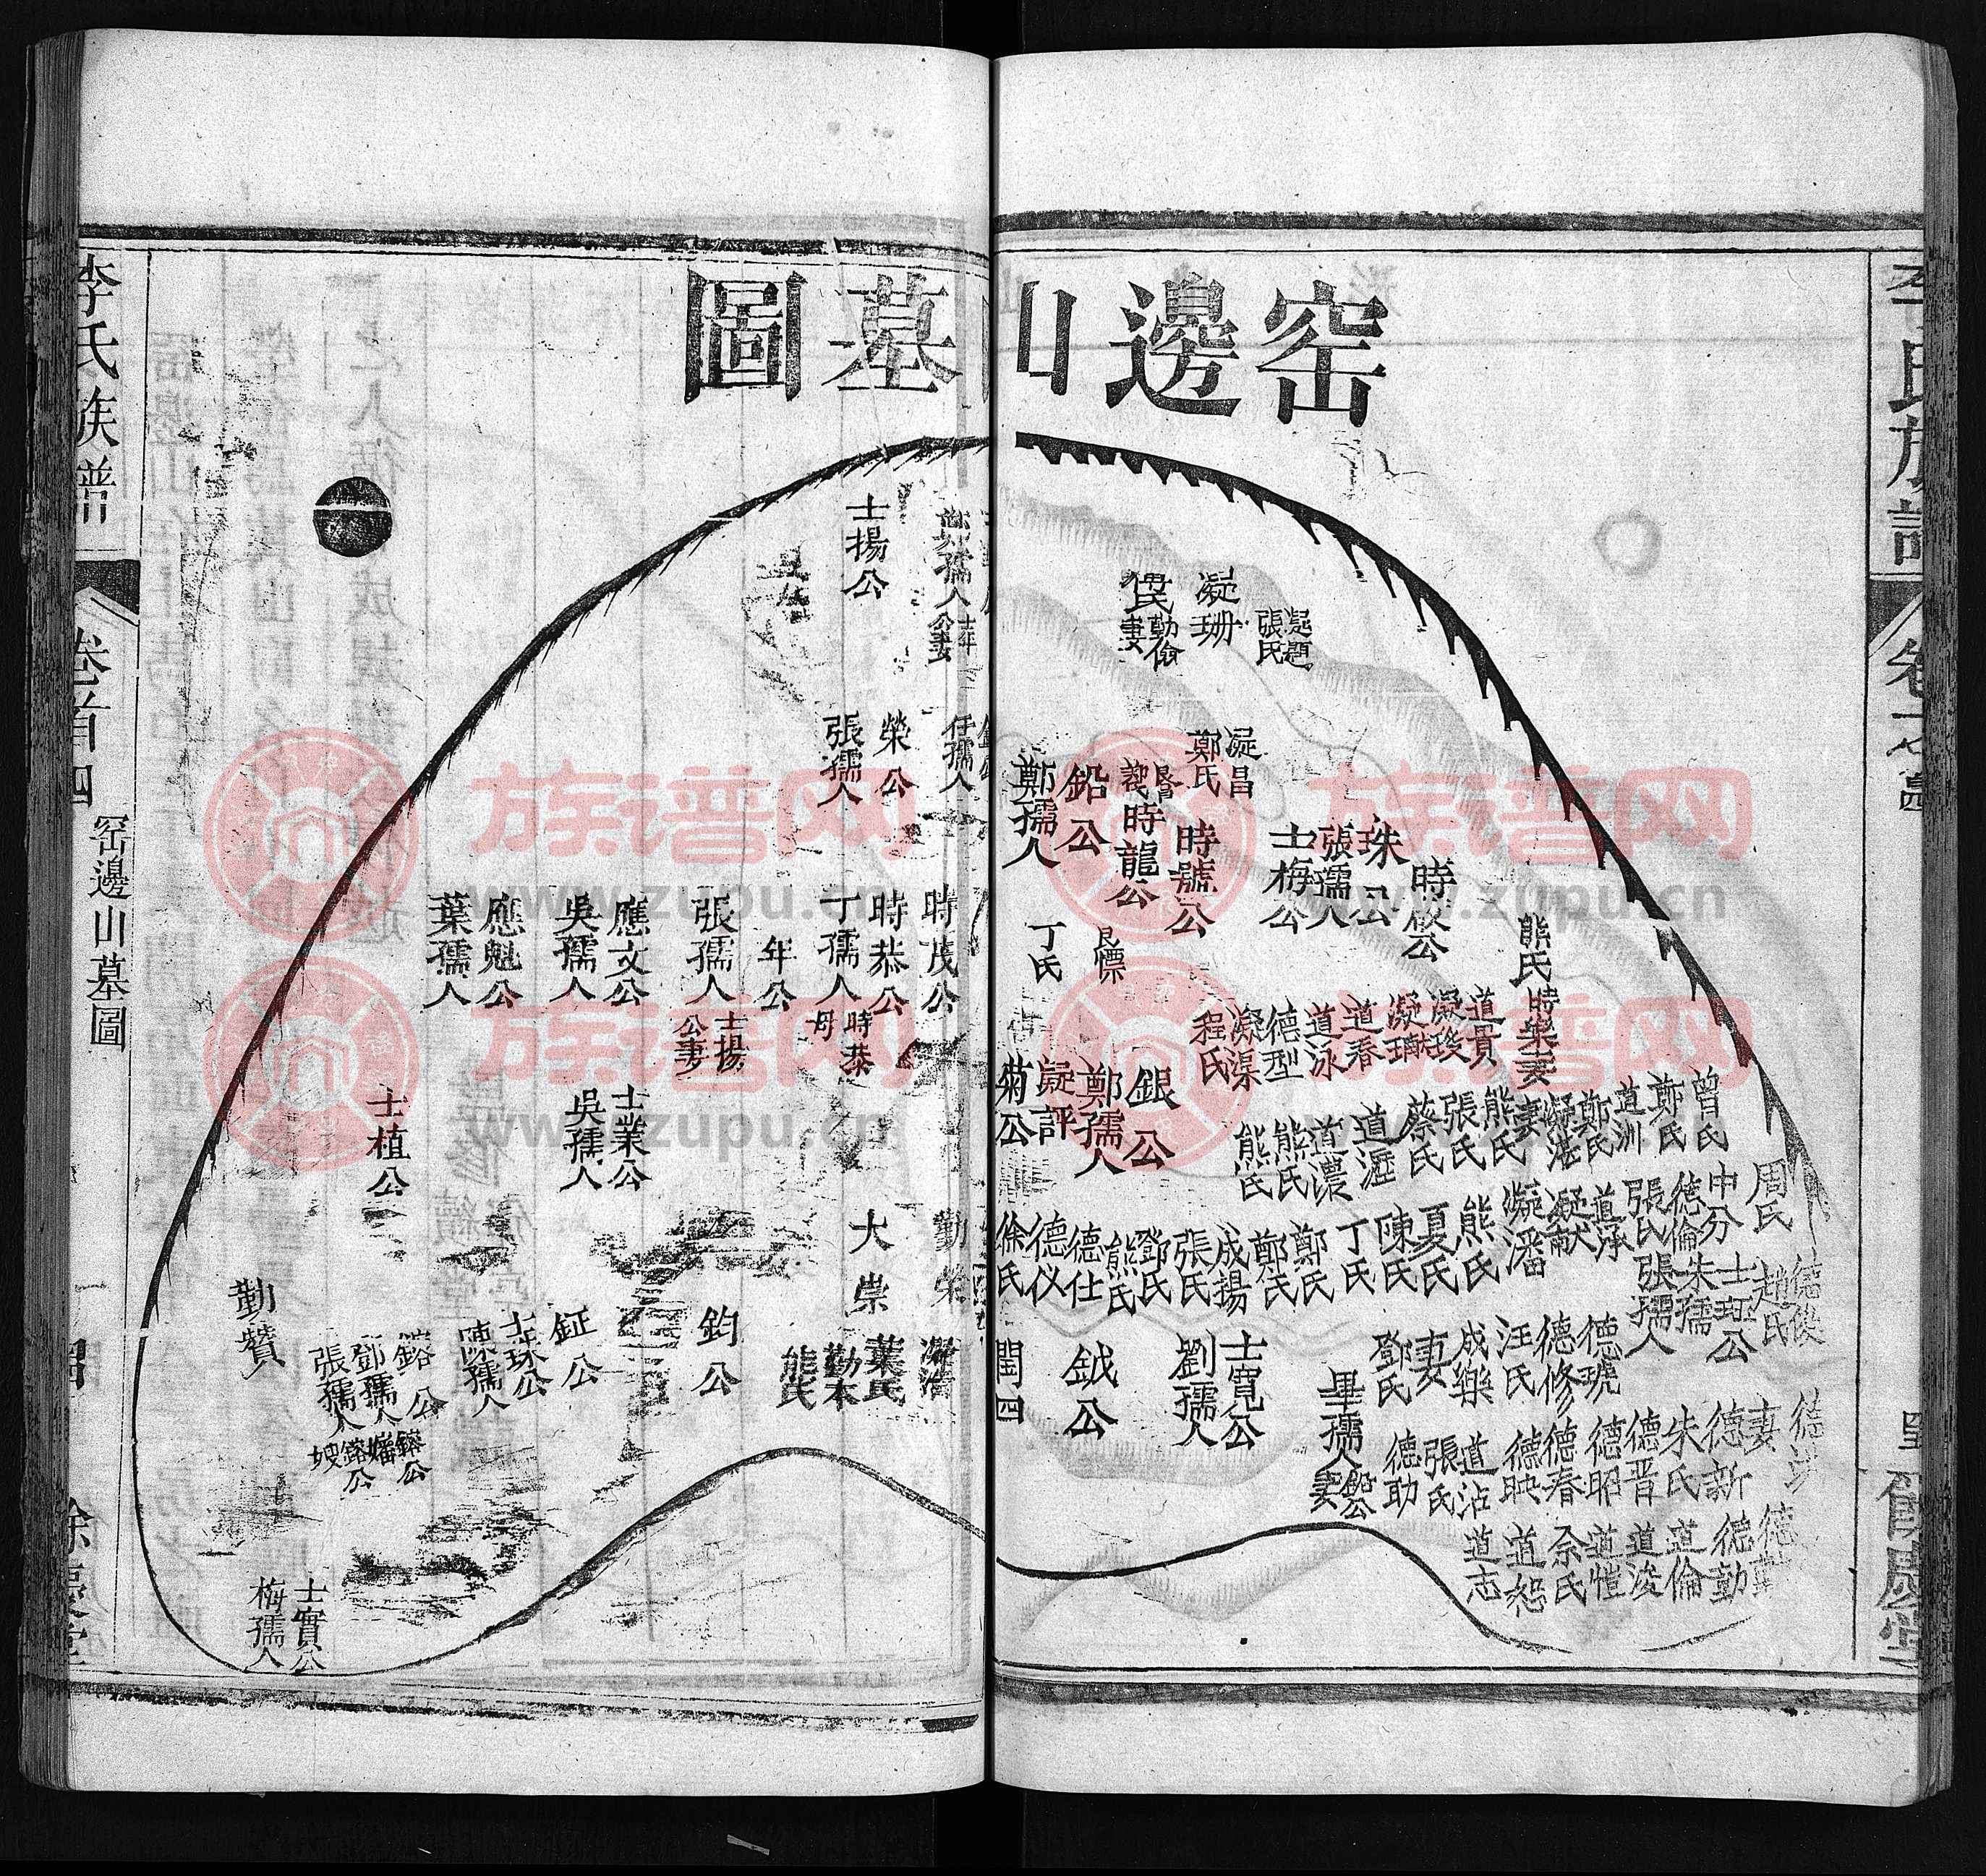 窑邊山墓圖
李氏族譜
卷首四
窑邊山墓圖
餘慶堂
凝珊
張氏
勤儉
妻
凝昌
鄭氏
時龍公
時號公
鉛公
鄭孺人
珠公
張孺人
士梅公
熊氏
時樂妻
丁氏
道貫
凝璇
凝瓛
道春
道泳
德型
凝渠
程氏
銀公
鄭孺人
凝評
菊公
曾氏
鄭氏
道洲
鄭氏
凝湛
妻
熊氏
張氏
蔡氏
道瀝
道濃
熊氏
熊氏
周氏
中分
德倫
張氏
道淳
凝献
凝潘
熊氏
夏氏
陳氏
丁氏
鄭氏
鄭氏
成揚
張氏
鄧氏
熊氏
德仕
德仪
徐氏
德俊
趙氏
士珏公
朱孺人
張孺人
德琥
德修
汪氏
成樂
妻
鄧氏
畢孺人
鉛公
妻
士寬公
劉孺人
鉞公
閏四
妻
德新
朱氏
德晋
德昭
德春
德映
道沾
張氏
德助
德勳
道倫
道浚
道愷
余氏
道恕
道志
士揚公
鄭孺人
公妻
榮公
張孺人
任孺人
時茂公
時恭公
丁孺人
時恭
母
年公
張孺人
士揚
公妻
應文公
吳孺人
應魁公
葉孺人
士業公
吳孺人
士植公
勤榮
大崇
葉氏
勤本
熊氏
鈞公
鉦公
士珠公
陳孺人
鎔公
鄧孺人
張孺人
鎔公
鎔公
嫂
勤贊
士實公
梅孺人
族谱网
www.zupu.cn
族谱网
www.zupu.cn
族谱网
www.zupu.cn
族谱网
www.zupu.cn